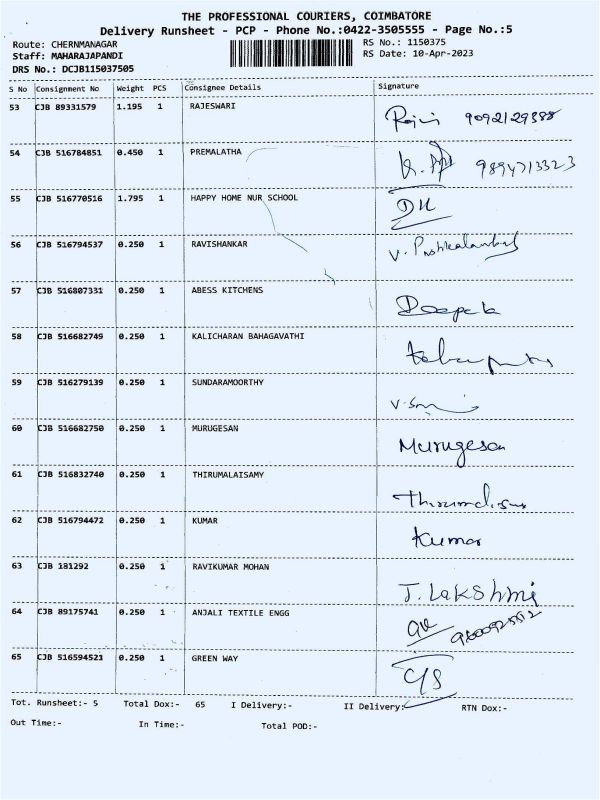 THE PROFESSIONAL COURIERS, COIMBATORE
Delivery Runsheet - PCP - Phone No.:0422-3505555 - Page No.:5
Route: CHERNMANAGAR RS No.: 1150375
Staff: MAHARAJAPANDI RS Date: 10-Apr-2023
DRS No.: DCJB115037505
S No Consignment No Weight PCS Consignee Details Signature
53 CJB 89331579 1.195 1 RAJESWARI
54 CJB 516784851 0.450 1 PREMALATHA
55 CJB 516770516 1.795 1 HAPPY HOME NUR SCHOOL
56 CJB 516794537 0.250 1 RAVISHANKAR
57 CJB 516807331 0.250 1 ABESS KITCHENS Deepak
58 CJB 516682749 0.250 1 KALICHARAN BAHAGAVATHI
59 CJB 516279139 0.250 1 SUNDARAMOORTHY
60 CJB 516682750 0.250 1 MURUGESAN Murugesan
61 CJB 516832740 0.250 1 THIRUMALAISAMY
62 CJB 516794472 0.250 1 KUMAR Kumar
63 CJB 181292 0.250 1 RAVIKUMAR MOHAN J. Lakshmi
64 CJB 89175741 0.250 1 ANJALI TEXTILE ENGG
65 CJB 516594521 0.250 1 GREEN WAY
Tot. Runsheet:- 5 Total Dox:- 65 I Delivery:- II Delivery:- RTN Dox:-
Out Time:- In Time:- Total POD:-